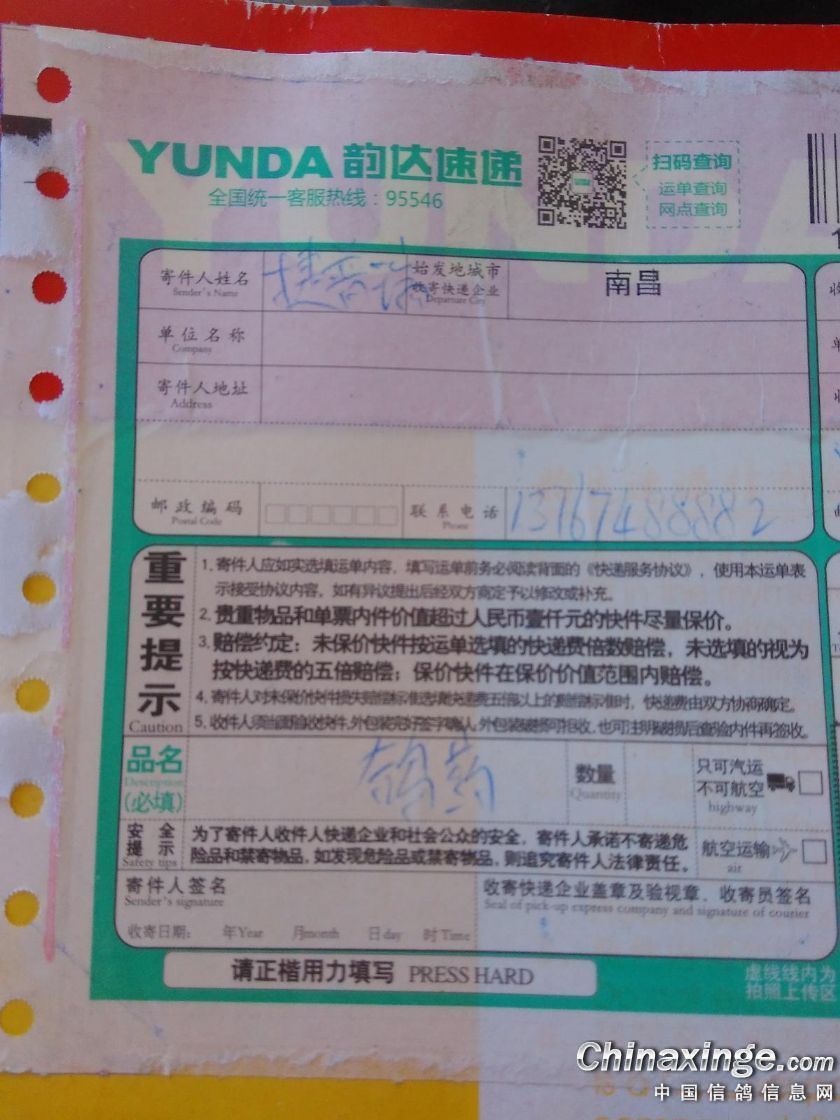 YUNDA 韵达速递
全国统一客服热线：95546
扫码查询
运单查询
网点查询
寄件人姓名
Sender's Name
始发地城市
收寄快递企业
Departure City
南昌
单位名称
Company
寄件人地址
Address
邮政编码
Postal Code
联系电话
Phone
13767488882
重要提示
Caution
1. 寄件人应如实选填运单内容，填写运单前务必阅读背面的《快递服务协议》，使用本运单表
示接受协议内容，如有异议提出后经双方商定予以修改或补充。
2. 贵重物品和单票内件价值超过人民币壹仟元的快件尽量保价。
3. 赔偿约定：未保价快件按运单选填的快递费倍数赔偿，未选填的视为
按快递费的五倍赔偿；保价快件在保价价值范围内赔偿。
4. 寄件人对未保价快件损失赔偿标准选填快递费五倍以上的赔偿标准时，快递费由双方协商确定。
5. 收件人须当面验收快件，外包装完好签字确认，外包装破损可拒收，也可注明破损后查验内件再签收。
品名
Description
(必填)
鸽药
数量
Quantity
只可汽运
不可航空
highway
安全
提示
Safety tips
为了寄件人收件人快递企业和社会公众的安全，寄件人承诺不寄递危
险品和禁寄物品，如发现危险品或禁寄物品，则追究寄件人法律责任。
航空运输
air
寄件人签名
Sender's signature
收寄快递企业盖章及验视章、收寄员签名
Seal of pick-up express company and signature of courier
收寄日期： 年Year 月month 日day 时Time
请正楷用力填写 PRESS HARD
虚线线内为
拍照上传区
Chinaxinge.com
中国信鸽信息网